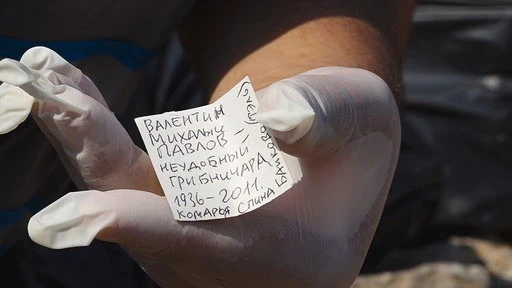 ВАЛЕНТИН
МИХАЛЫЧ
ПАВЛОВ –
НЕУДОБНЫЙ
ГРИБНИЧАРА
1936–2011.
КОМАРЬЯ СПИНА